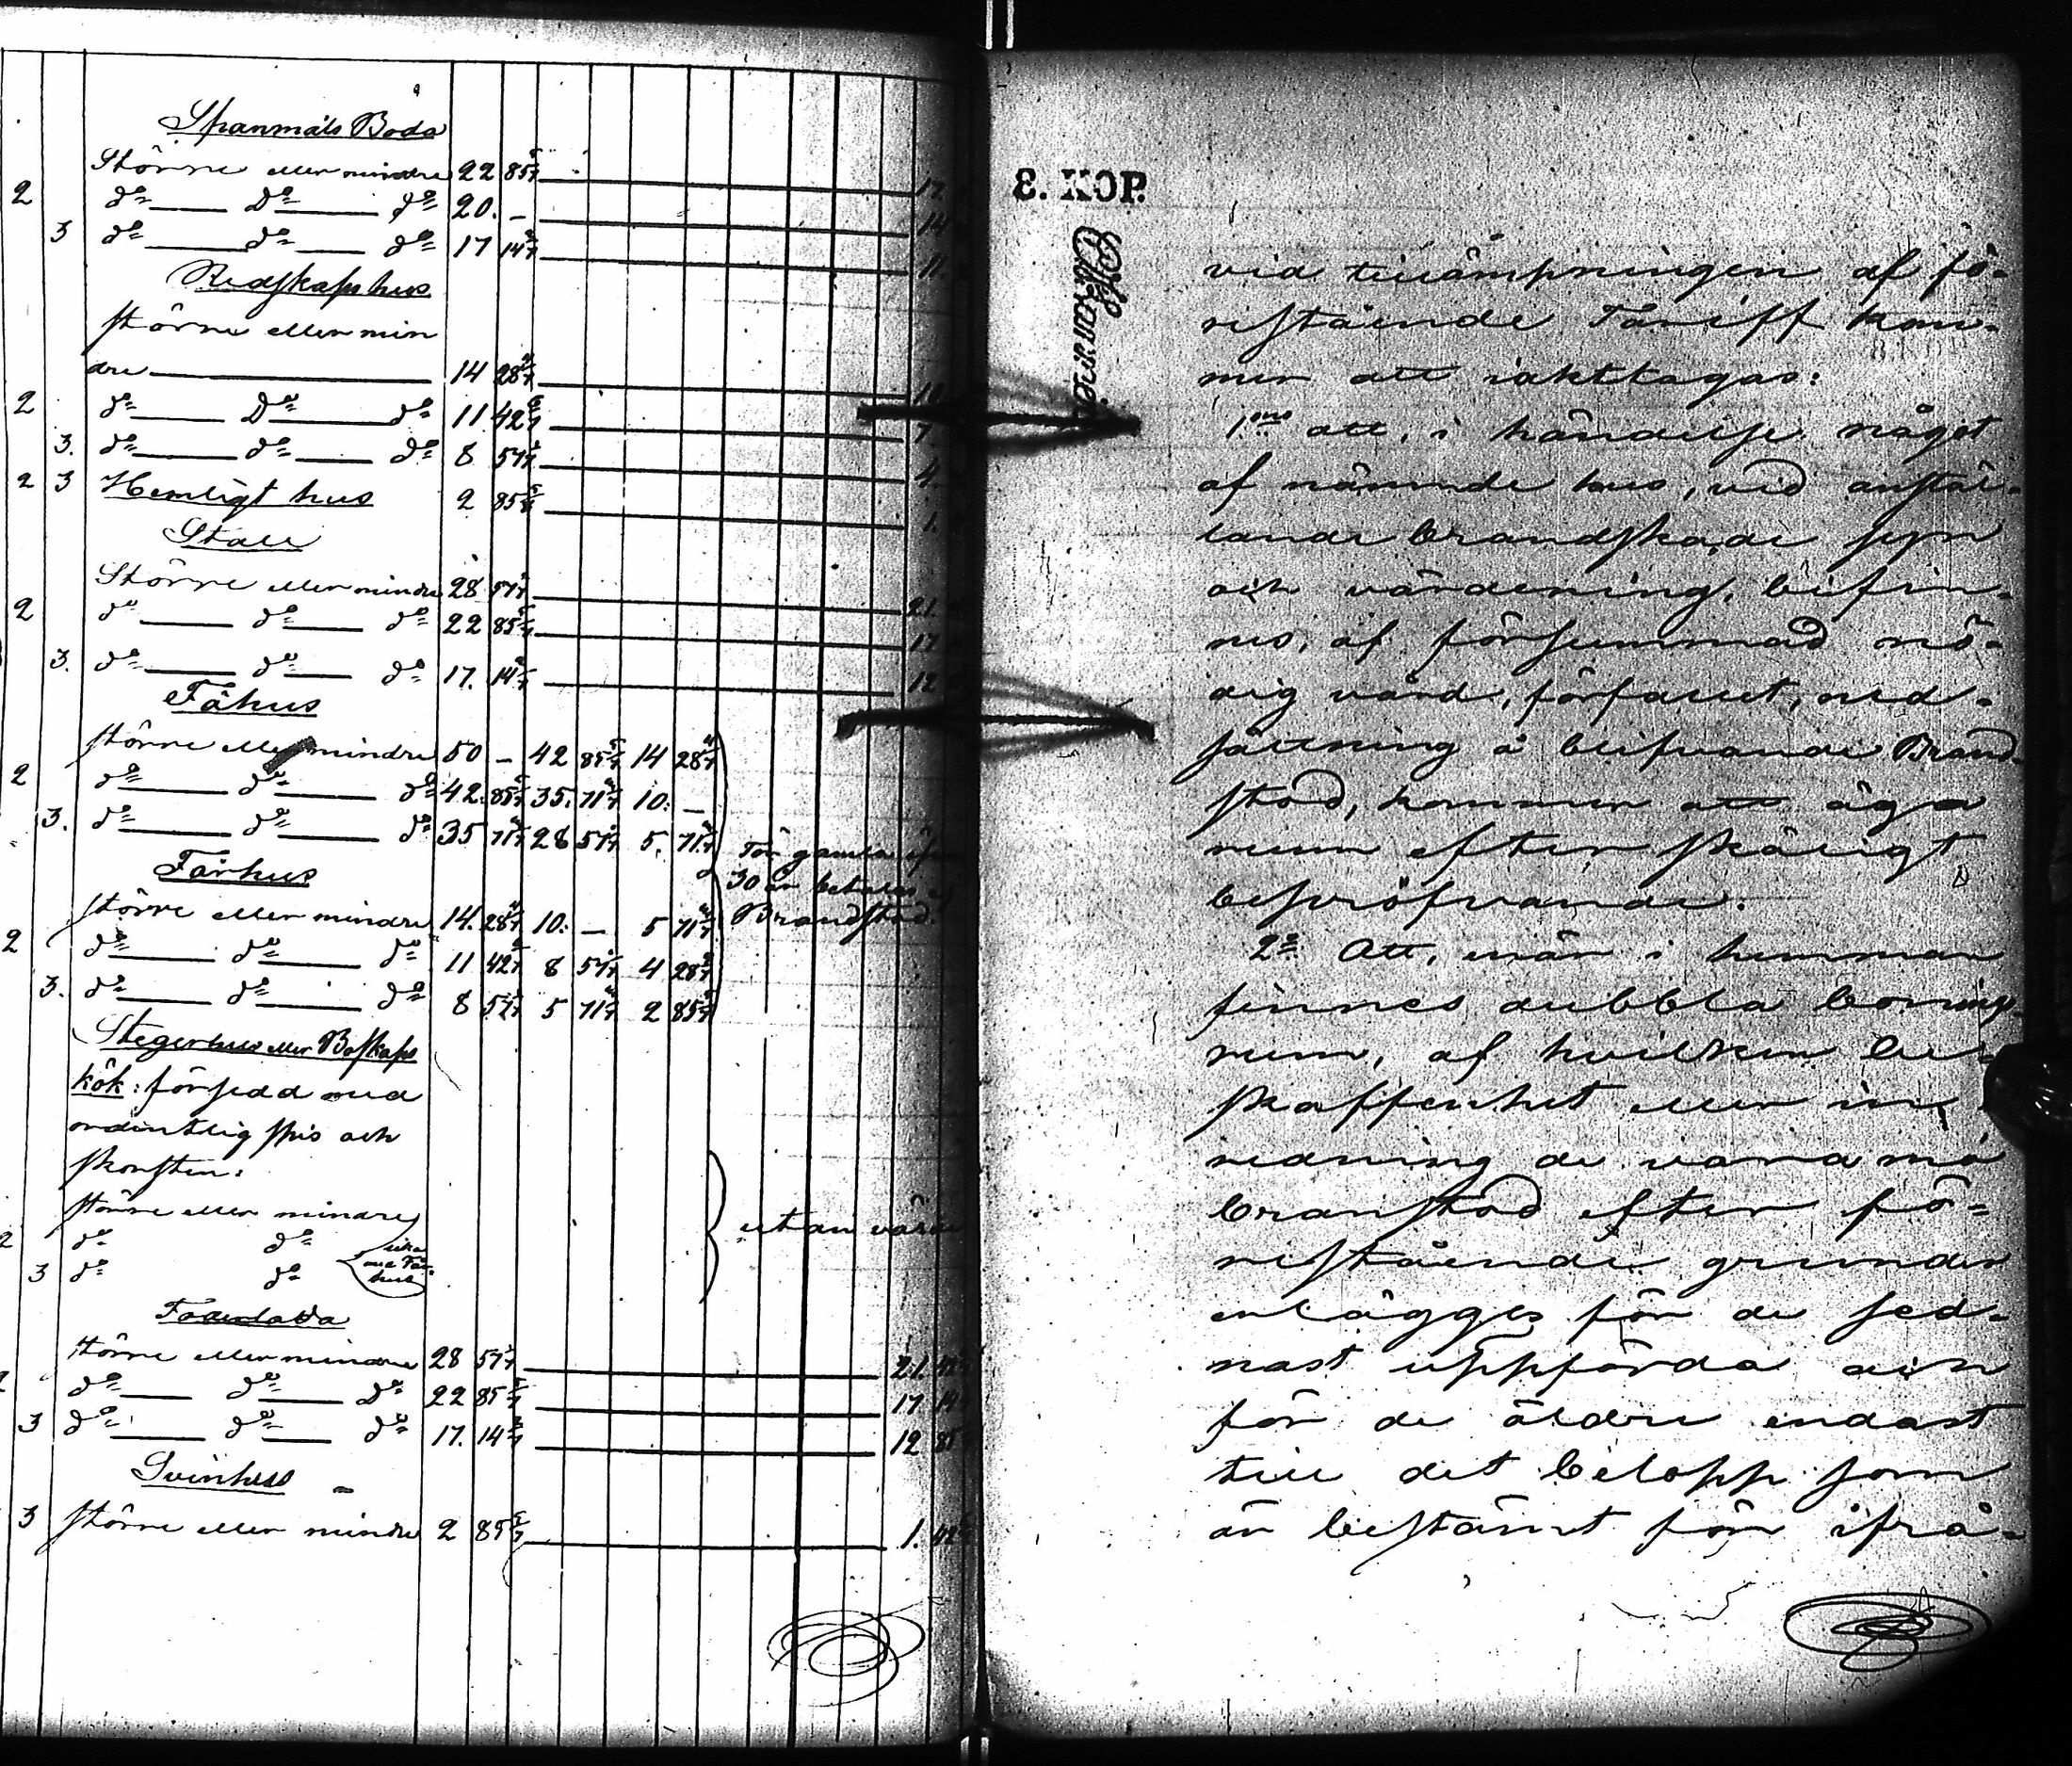 Spanmåls Boda
Större eller mindre 22 85 5/7 17.
2 do Do do 20. — 14
3 do do do 17 14 2/7 11.
Redskapshus
större eller min
dre 14 28 4/7 10
2 do Do do 11. 42 6/7 7.
3. do do do 8 57 1/7 4.
2 3 Hemligt hus 2 85 5/7 1.
Stall
Större eller mindre 28 57 1/7 21.
2 do do do 22 85 5/7 17
3. do do do 17. 14 2/7 12
Fähus
större eller mindre 50 — 42 85 5/7 14 28 4/7
2 do do do 42. 85 5/7 35. 71 3/7 10. —
3. do do do 35 71 3/7 28 57 1/7 5. 71 3/7
För gamla
30 år betalas
Brandstod.
Fårhus
större eller mindre 14. 28 4/7 10. — 5 71 3/7
2 do do do 11 42 6/7 8 57 1/7 4 28 4/7
3. do do do 8 57 1/7 5 71 3/7 2 85 5/7
Stegerhus eller Boskaps
kök: försedd med
ordentlig spis och
skorsten:
större eller mindre
2 do do
3 do do
lika
med Får
hus
utan
Foderlada
större eller mindre 28 57 1/7 21.
2 do do do 22 85 5/7 17 14
3 do do do 17. 14 2/7 12 85
Svinhus
3 större eller mindre 2 85 5/7 1. 42
3. KOP.
vid tillämpningen af fö-
restående Tariff kom-
mer att iakttagas:
1mo att, i händelse något
af nämnde hus, vid anstäl-
lande brandskade syn
och värdering, befin-
nes, af försummad nö-
dig vård, förfallet, ned-
sättning å blifvande Brand-
stod, kommer att äga
rum efter skäligt
bepröfvande.
2o Att, när i hemman
finnes dubbla bonings
rum, af hvilken be-
skaffenhet eller in-
redning de vara må
branstod efter fö-
restående grunder
erlägges för de sed-
nast uppförda och
för de äldre endast
till det belopp som
är bestämt för ifrå-